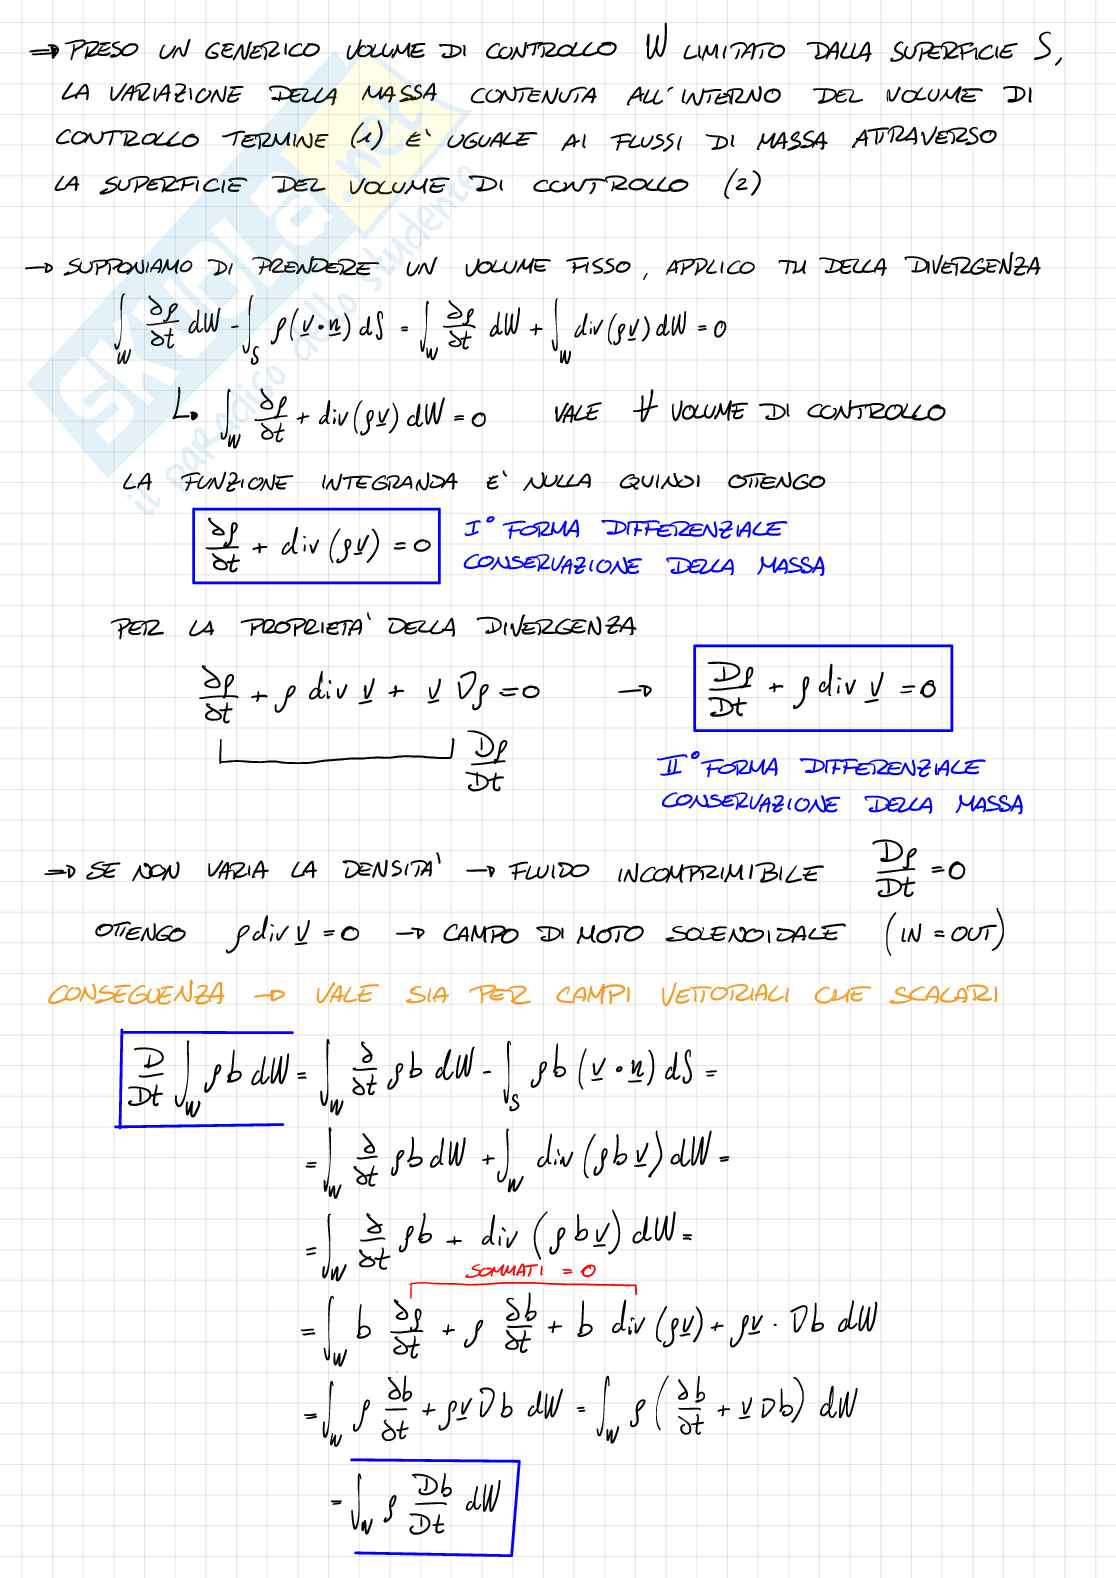 ⇒ PRESO UN GENERICO VOLUME DI CONTROLLO W LIMITATO DALLA SUPERFICIE S,
LA VARIAZIONE DELLA MASSA CONTENUTA ALL'INTERNO DEL VOLUME DI
CONTROLLO TERMINE (1) E' UGUALE AI FLUSSI DI MASSA ATTRAVERSO
LA SUPERFICIE DEL VOLUME DI CONTROLLO (2)
→ SUPPONIAMO DI PRENDERE UN VOLUME FISSO, APPLICO TH DELLA DIVERGENZA
∫_W ∂ρ/∂t dW - ∫_S ρ(v·n) dS = ∫_W ∂ρ/∂t dW + ∫_W div(ρv) dW = 0
↳ ∫_W ∂ρ/∂t + div(ρv) dW = 0 VALE ∀ VOLUME DI CONTROLLO
LA FUNZIONE INTEGRANDA E' NULLA QUINDI OTTENGO
∂ρ/∂t + div(ρv) = 0 I° FORMA DIFFERENZIALE
CONSERVAZIONE DELLA MASSA
PER LA PROPRIETA' DELLA DIVERGENZA
∂ρ/∂t + ρ div v + v ∇ρ = 0 → Dρ/Dt + ρ div v = 0
Dρ/Dt
II° FORMA DIFFERENZIALE
CONSERVAZIONE DELLA MASSA
⇒ SE NON VARIA LA DENSITA' → FLUIDO INCOMPRIMIBILE Dρ/Dt = 0
OTTENGO ρ div v = 0 → CAMPO DI MOTO SOLENOIDALE (IN = OUT)
CONSEGUENZA → VALE SIA PER CAMPI VETTORIALI CHE SCALARI
D/Dt ∫_W ρb dW = ∫_W ∂/∂t ρb dW - ∫_S ρb (v·n) dS =
= ∫_W ∂/∂t ρb dW + ∫_W div(ρbv) dW =
= ∫_W ∂/∂t ρb + div(ρbv) dW =
SOMMATI = 0
= ∫_W b ∂ρ/∂t + ρ ∂b/∂t + b div(ρv) + ρv · ∇b dW
= ∫_W ρ ∂b/∂t + ρv ∇b dW = ∫_W ρ (∂b/∂t + v ∇b) dW
= ∫_W ρ Db/Dt dW
SKUOLA.net
il paradiso dello studente